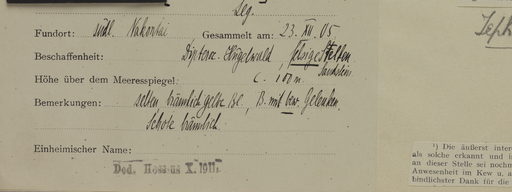 Leg.
Fundort: südl. Nakontai Gesammelt am: 23. XII. 05
Beschaffenheit: Dipteroc. Hügelwald, felsige Stellen
Sandstein.
Höhe über dem Meeresspiegel: c. 100 m
Bemerkungen: selten, bräunlich gelbe Bl., B. mit bew. Gelenken,
Schote bräunlich.
Einheimischer Name:
Ded. Hosseus X. 1911.
¹) Die äußerst inter
als solche erkannt und i
an dieser Stelle sei nochm
Anwesenheit im Kew u. a
bindlichster Dank für die